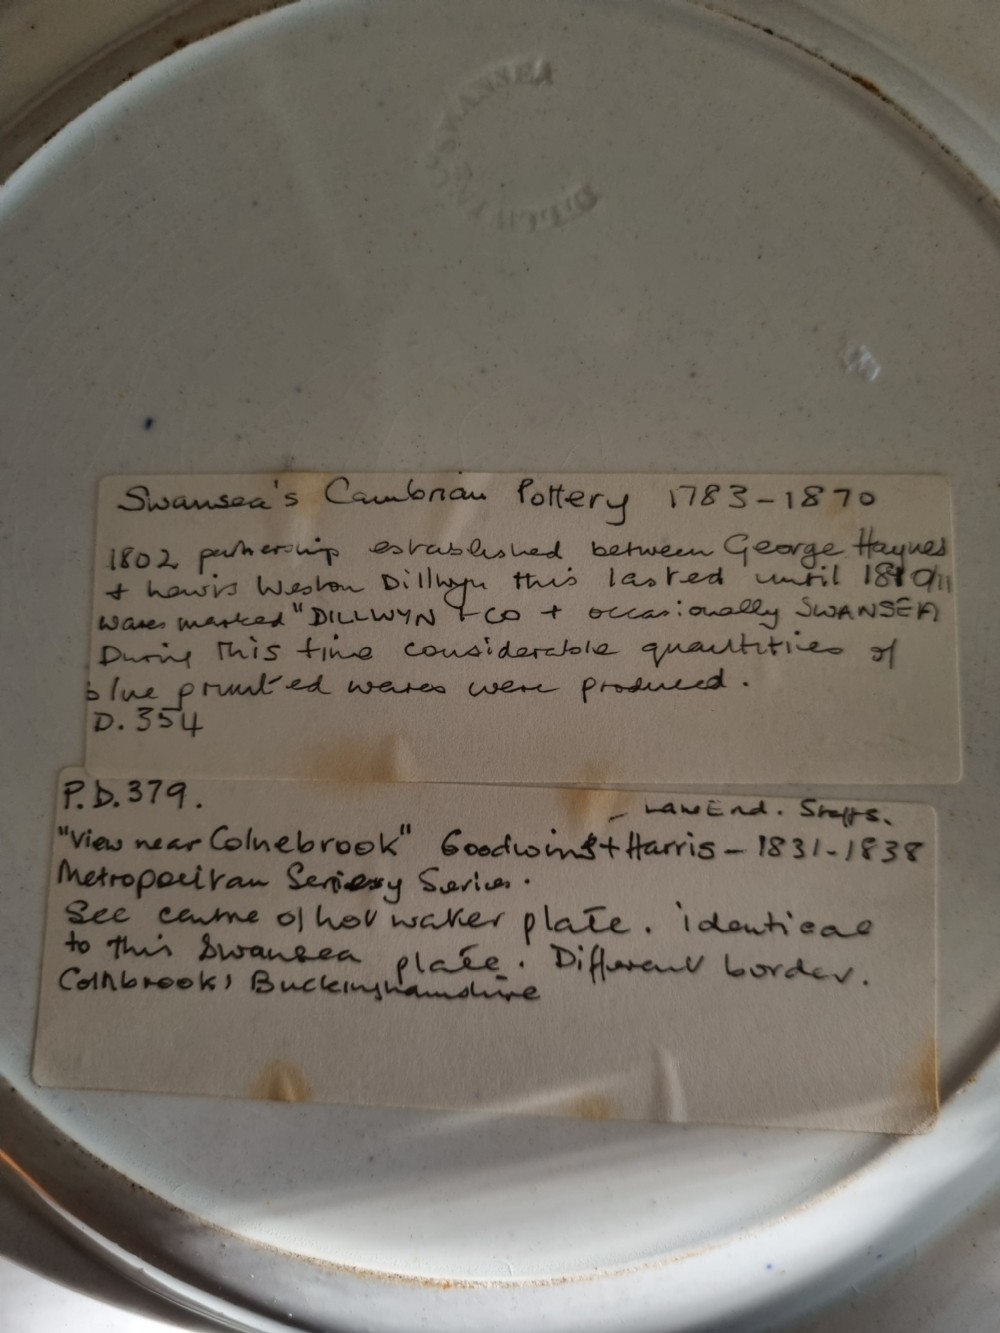 SWANSEA
DILLWYN & CO
Swansea's Cambrian Pottery 1783-1870
1802 partnership established between George Haynes
+ Lewis Weston Dillwyn this lasted until 1810/11
wares marked "DILLWYN + CO + occasionally SWANSEA
During this time considerable quantities of
blue printed wares were produced.
D. 354
P.D. 379.
- Lane End. Staffs.
"View near Colnebrook" Goodwins + Harris - 1831-1838
Metropolitan Scenery Series.
See centre of hot water plate. identical
to this Swansea plate. Different border.
Colnbrook, Buckinghamshire